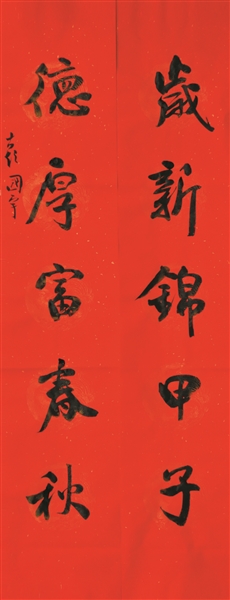 歲新錦甲子
德厚富春秋